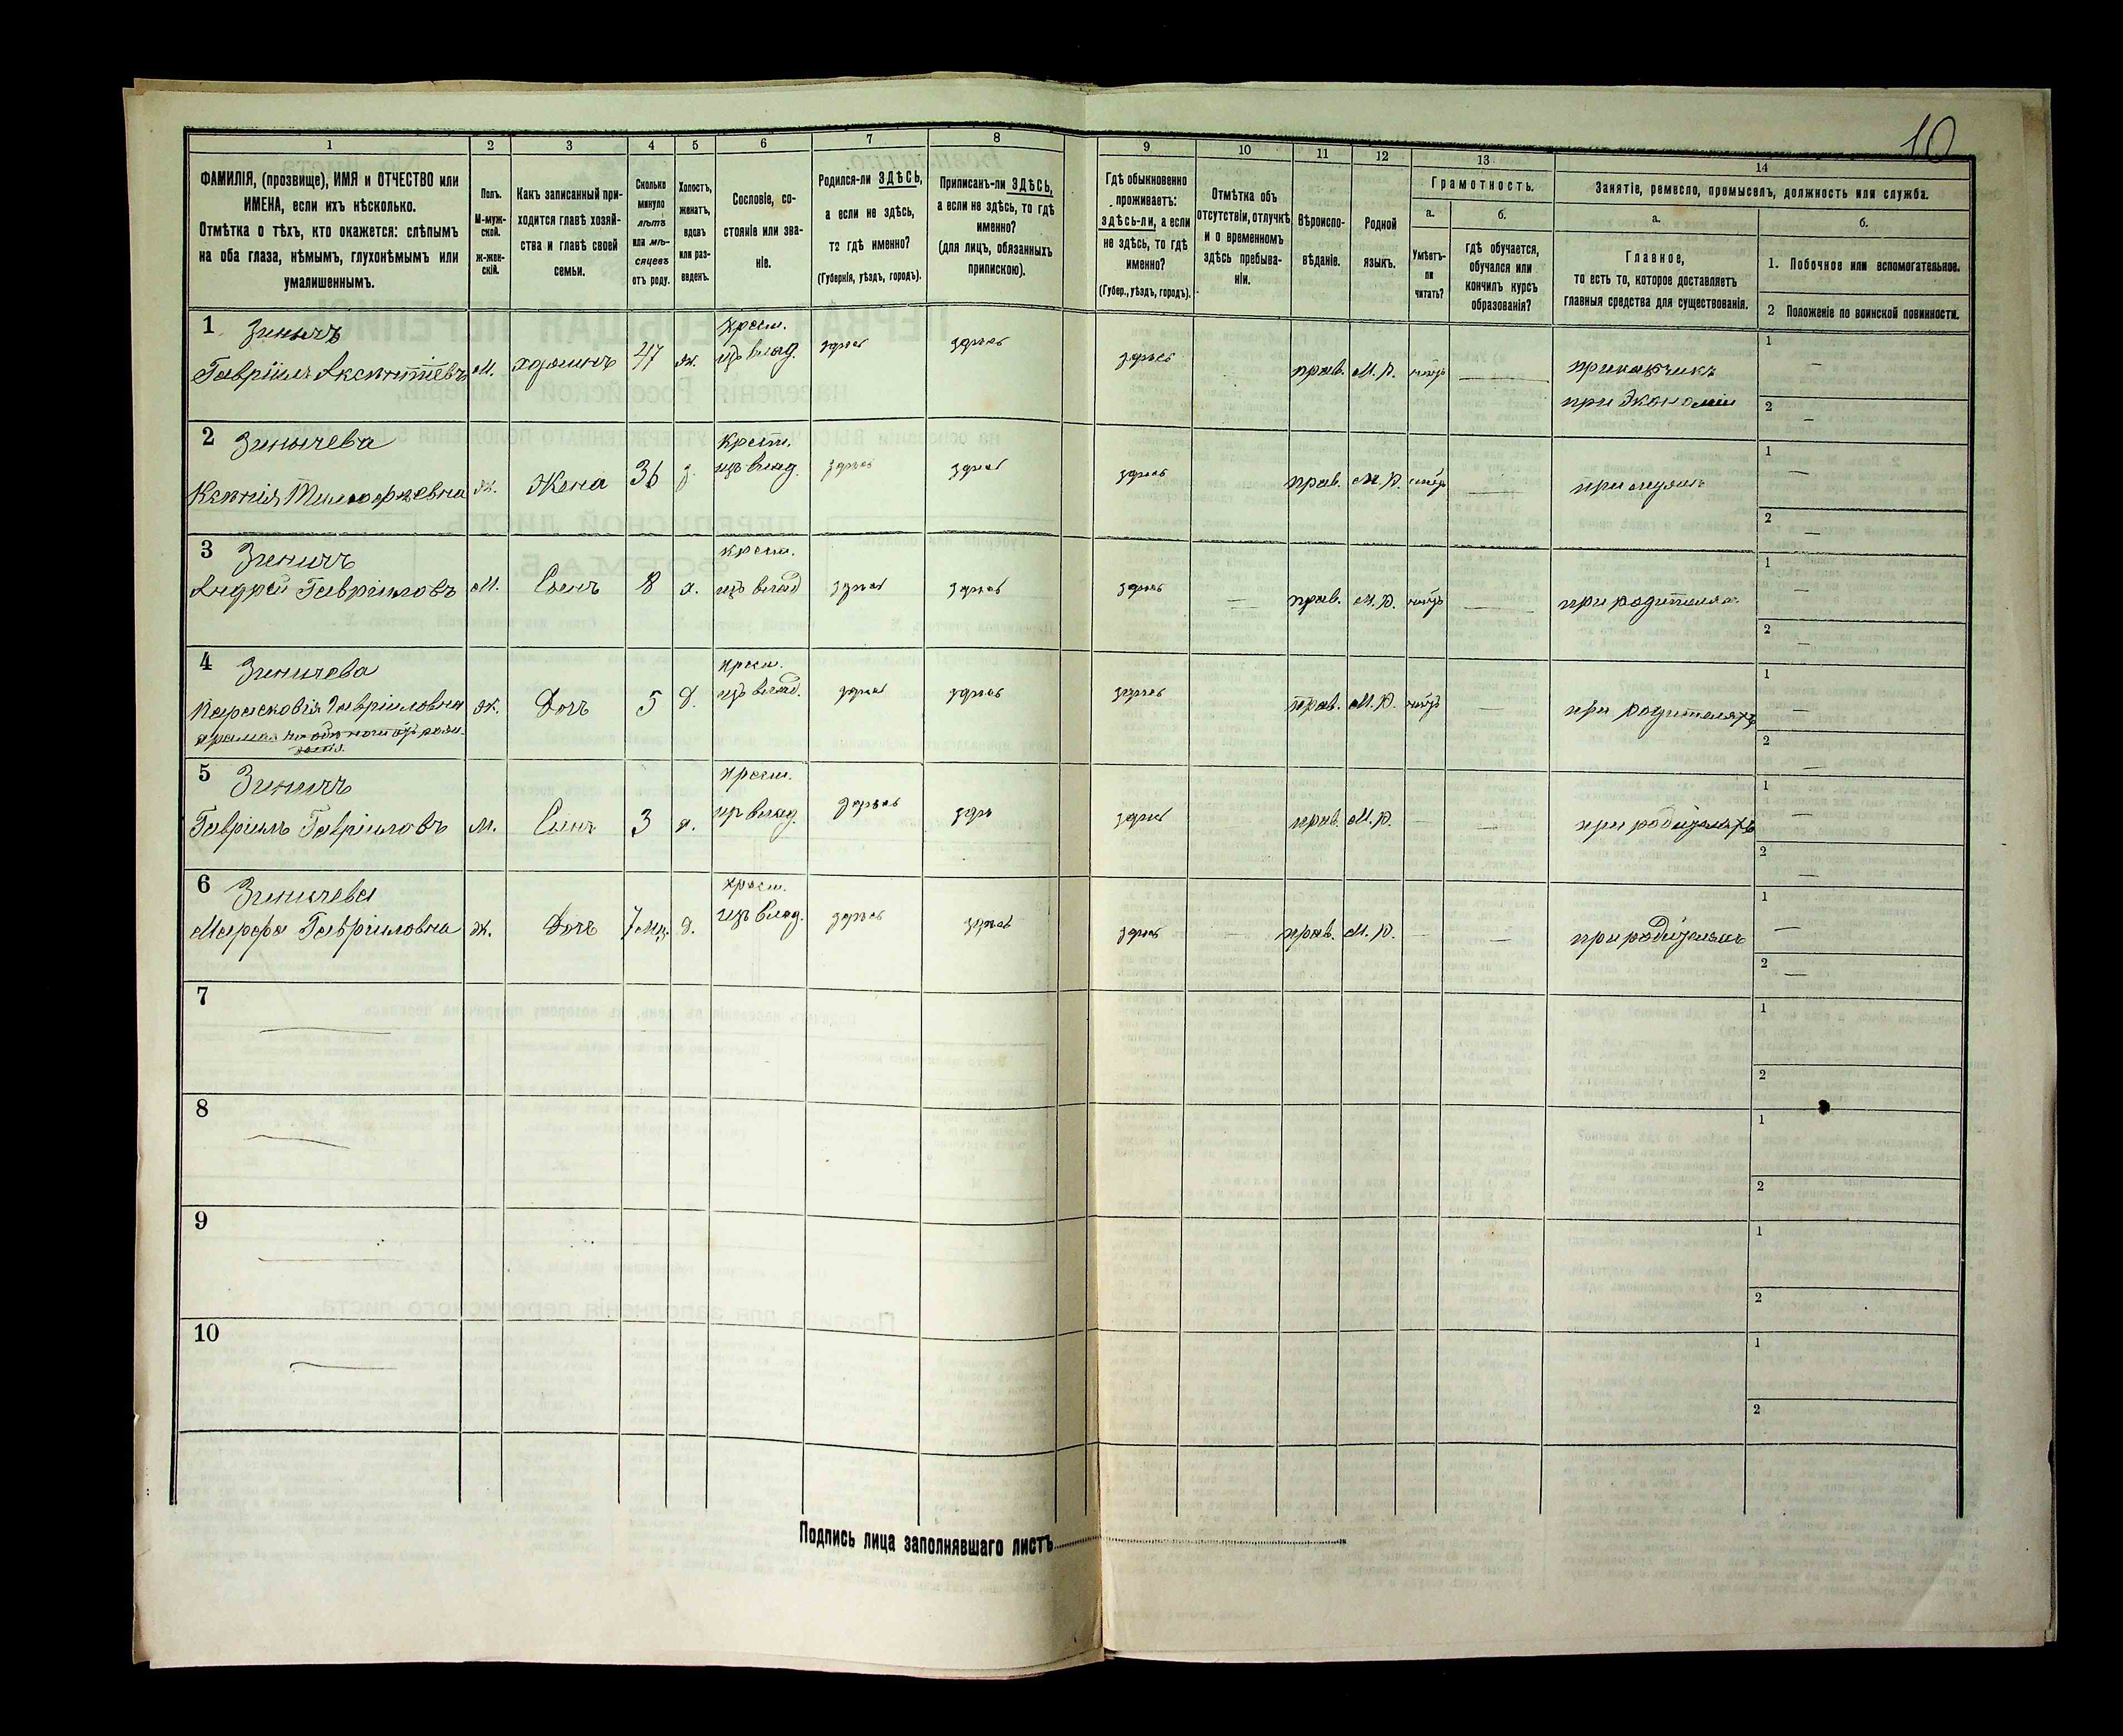 10
1
2
3
4
5
6
7
8
9
10
11
12
13
14
ФАМИЛІЯ, (прозвище), ИМЯ и ОТЧЕСТВО или
ИМЕНА, если ихъ нѣсколько.
Отмѣтка о тѣхъ, кто окажется: слѣпымъ
на оба глаза, нѣмымъ, глухонѣмымъ или
умалишеннымъ.
Полъ.
М-муж-
ской.
ж-жен-
скій.
Какъ записанный при-
ходится главѣ хозяй-
ства и главѣ своей
семьи.
Сколько
минуло
лѣтъ
или мѣ-
сяцевъ
отъ роду.
Холостъ,
женатъ,
вдовъ
или раз-
веденъ.
Сословіе, со-
стояніе или зва-
ніе.
Родился-ли ЗДѢСЬ,
а если не здѣсь,
то гдѣ именно?
(Губернія, уѣздъ, городъ).
Приписанъ-ли ЗДѢСЬ,
а если не здѣсь, то гдѣ
именно?
(для лицъ, обязанныхъ
припискою).
Гдѣ обыкновенно
проживаетъ:
здѣсь-ли, а если
не здѣсь, то гдѣ
именно?
(Губер., уѣздъ, городъ).
Отмѣтка объ
отсутствіи, отлучкѣ
и о временномъ
здѣсь пребыва-
ніи.
Вѣроиспо-
вѣданіе.
Родной
языкъ.
Грамотность.
а.
б.
Умѣетъ-
ли
читать?
гдѣ обучается,
обучался или
кончилъ курсъ
образованія?
Занятіе, ремесло, промыселъ, должность или служба.
а.
б.
Главное,
то есть то, которое доставляетъ
главныя средства для существованія.
1. Побочное или вспомогательное.
2 Положеніе по воинской повинности.
1 Зиничъ
Гавріилъ Аксентіевъ М. хозяинъ 47 ж. крест. изъ влад. здѣсь здѣсь здѣсь прав. М. Р. — приказчикъ
при Экономіи
1 —
2 —
2 Зиничева
Ксенія Тимофѣевна ж. Жена 36 крест. изъ влад. здѣсь здѣсь здѣсь прав. М. Р. — при мужѣ
1 —
2 —
3 Зиничъ
Андрей Гавріиловъ М. Сынъ 8 х. крест. изъ влад здѣсь здѣсь здѣсь — прав. М. Р. — при родителяхъ
1 —
2 —
4 Зиничева
Парасковія Гавріиловна ж. Дочь 5 д. крест. изъ влад. здѣсь здѣсь здѣсь прав. М. Р. — при родителяхъ
1 —
2 —
5 Зиничъ
Гавріилъ Гавріиловъ М. Сынъ 3 х. крест. изъ влад. здѣсь здѣсь здѣсь прав. М. Р. — — при родителяхъ
1 —
2 —
6 Зиничева
Марфа Гавріиловна ж. Дочь 7 мц. д. крест. изъ влад. здѣсь здѣсь здѣсь — прав. М. Р. — — при родителяхъ
1 —
2 —
7 —
1
2
8 —
1
2
9 —
1
2
10 —
1
2
Подпись лица заполнявшаго листъ